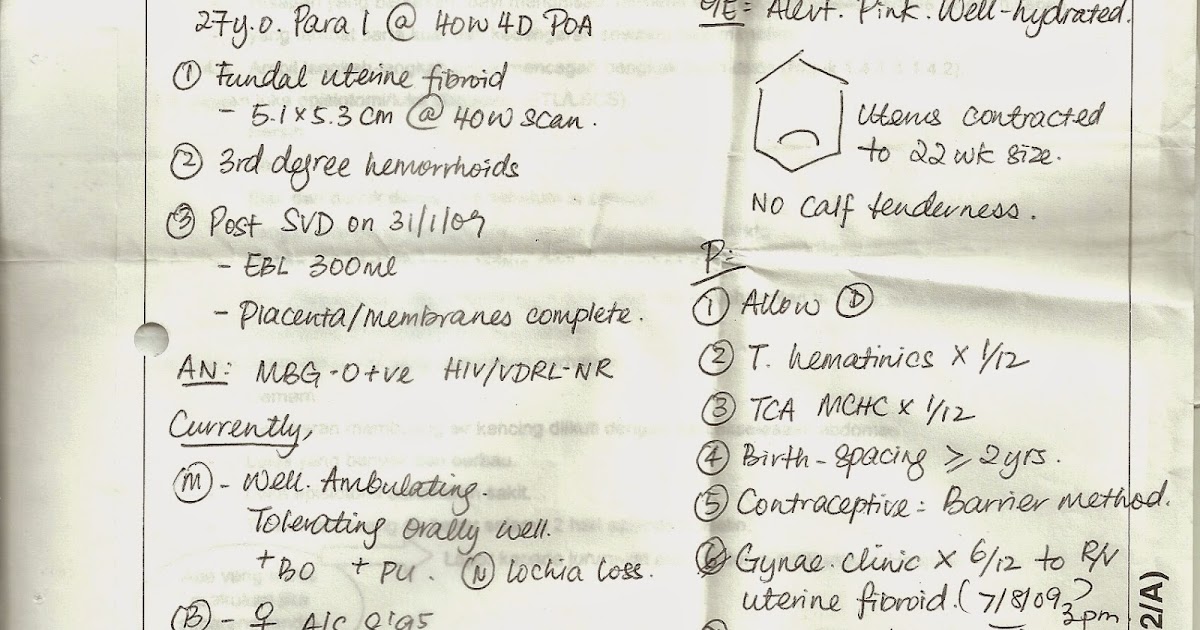 27y.o. Para 1 @ 40W 4D POA
① Fundal uterine fibroid
- 5.1 x 5.3 cm @ 40W scan.
② 3rd degree hemorrhoids
③ Post SVD on 31/1/09
- EBL 300ml
- Placenta/membranes complete.
AN: MBG - O+ve HIV/VDRL-NR
Currently,
Ⓜ - Well. Ambulating.
Tolerating orally well.
+BO +PU. Ⓝ lochia loss.
Ⓑ - ♀ A/S 9'95
O/E: Alert. Pink. Well-hydrated.
Uterus contracted
to 22 wk size.
No calf tenderness.
P:-
① Allow Ⓓ
② T. hematinics x 1/12
③ TCA MCHC x 1/12
④ Birth-spacing ≥ 2yrs.
⑤ Contraceptive: Barrier method.
⑥ Gynae. clinic x 6/12 to R/V
uterine fibroid. (7/8/09, 3pm)
2/A)